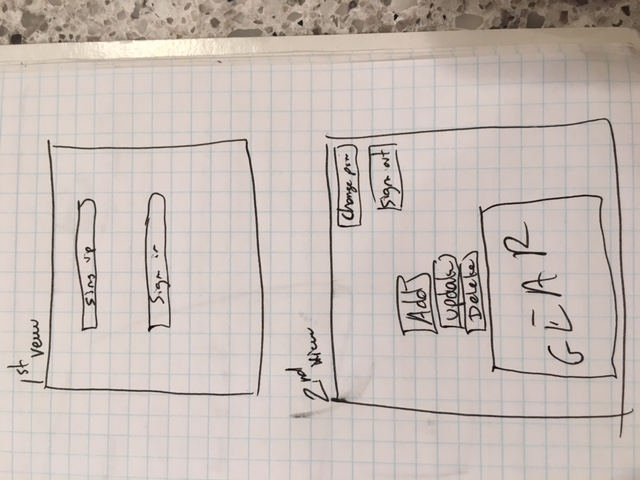 1st view
sing up
Sign in
2nd view
Change psw
Sign out
Add
update
Delete
GEAR